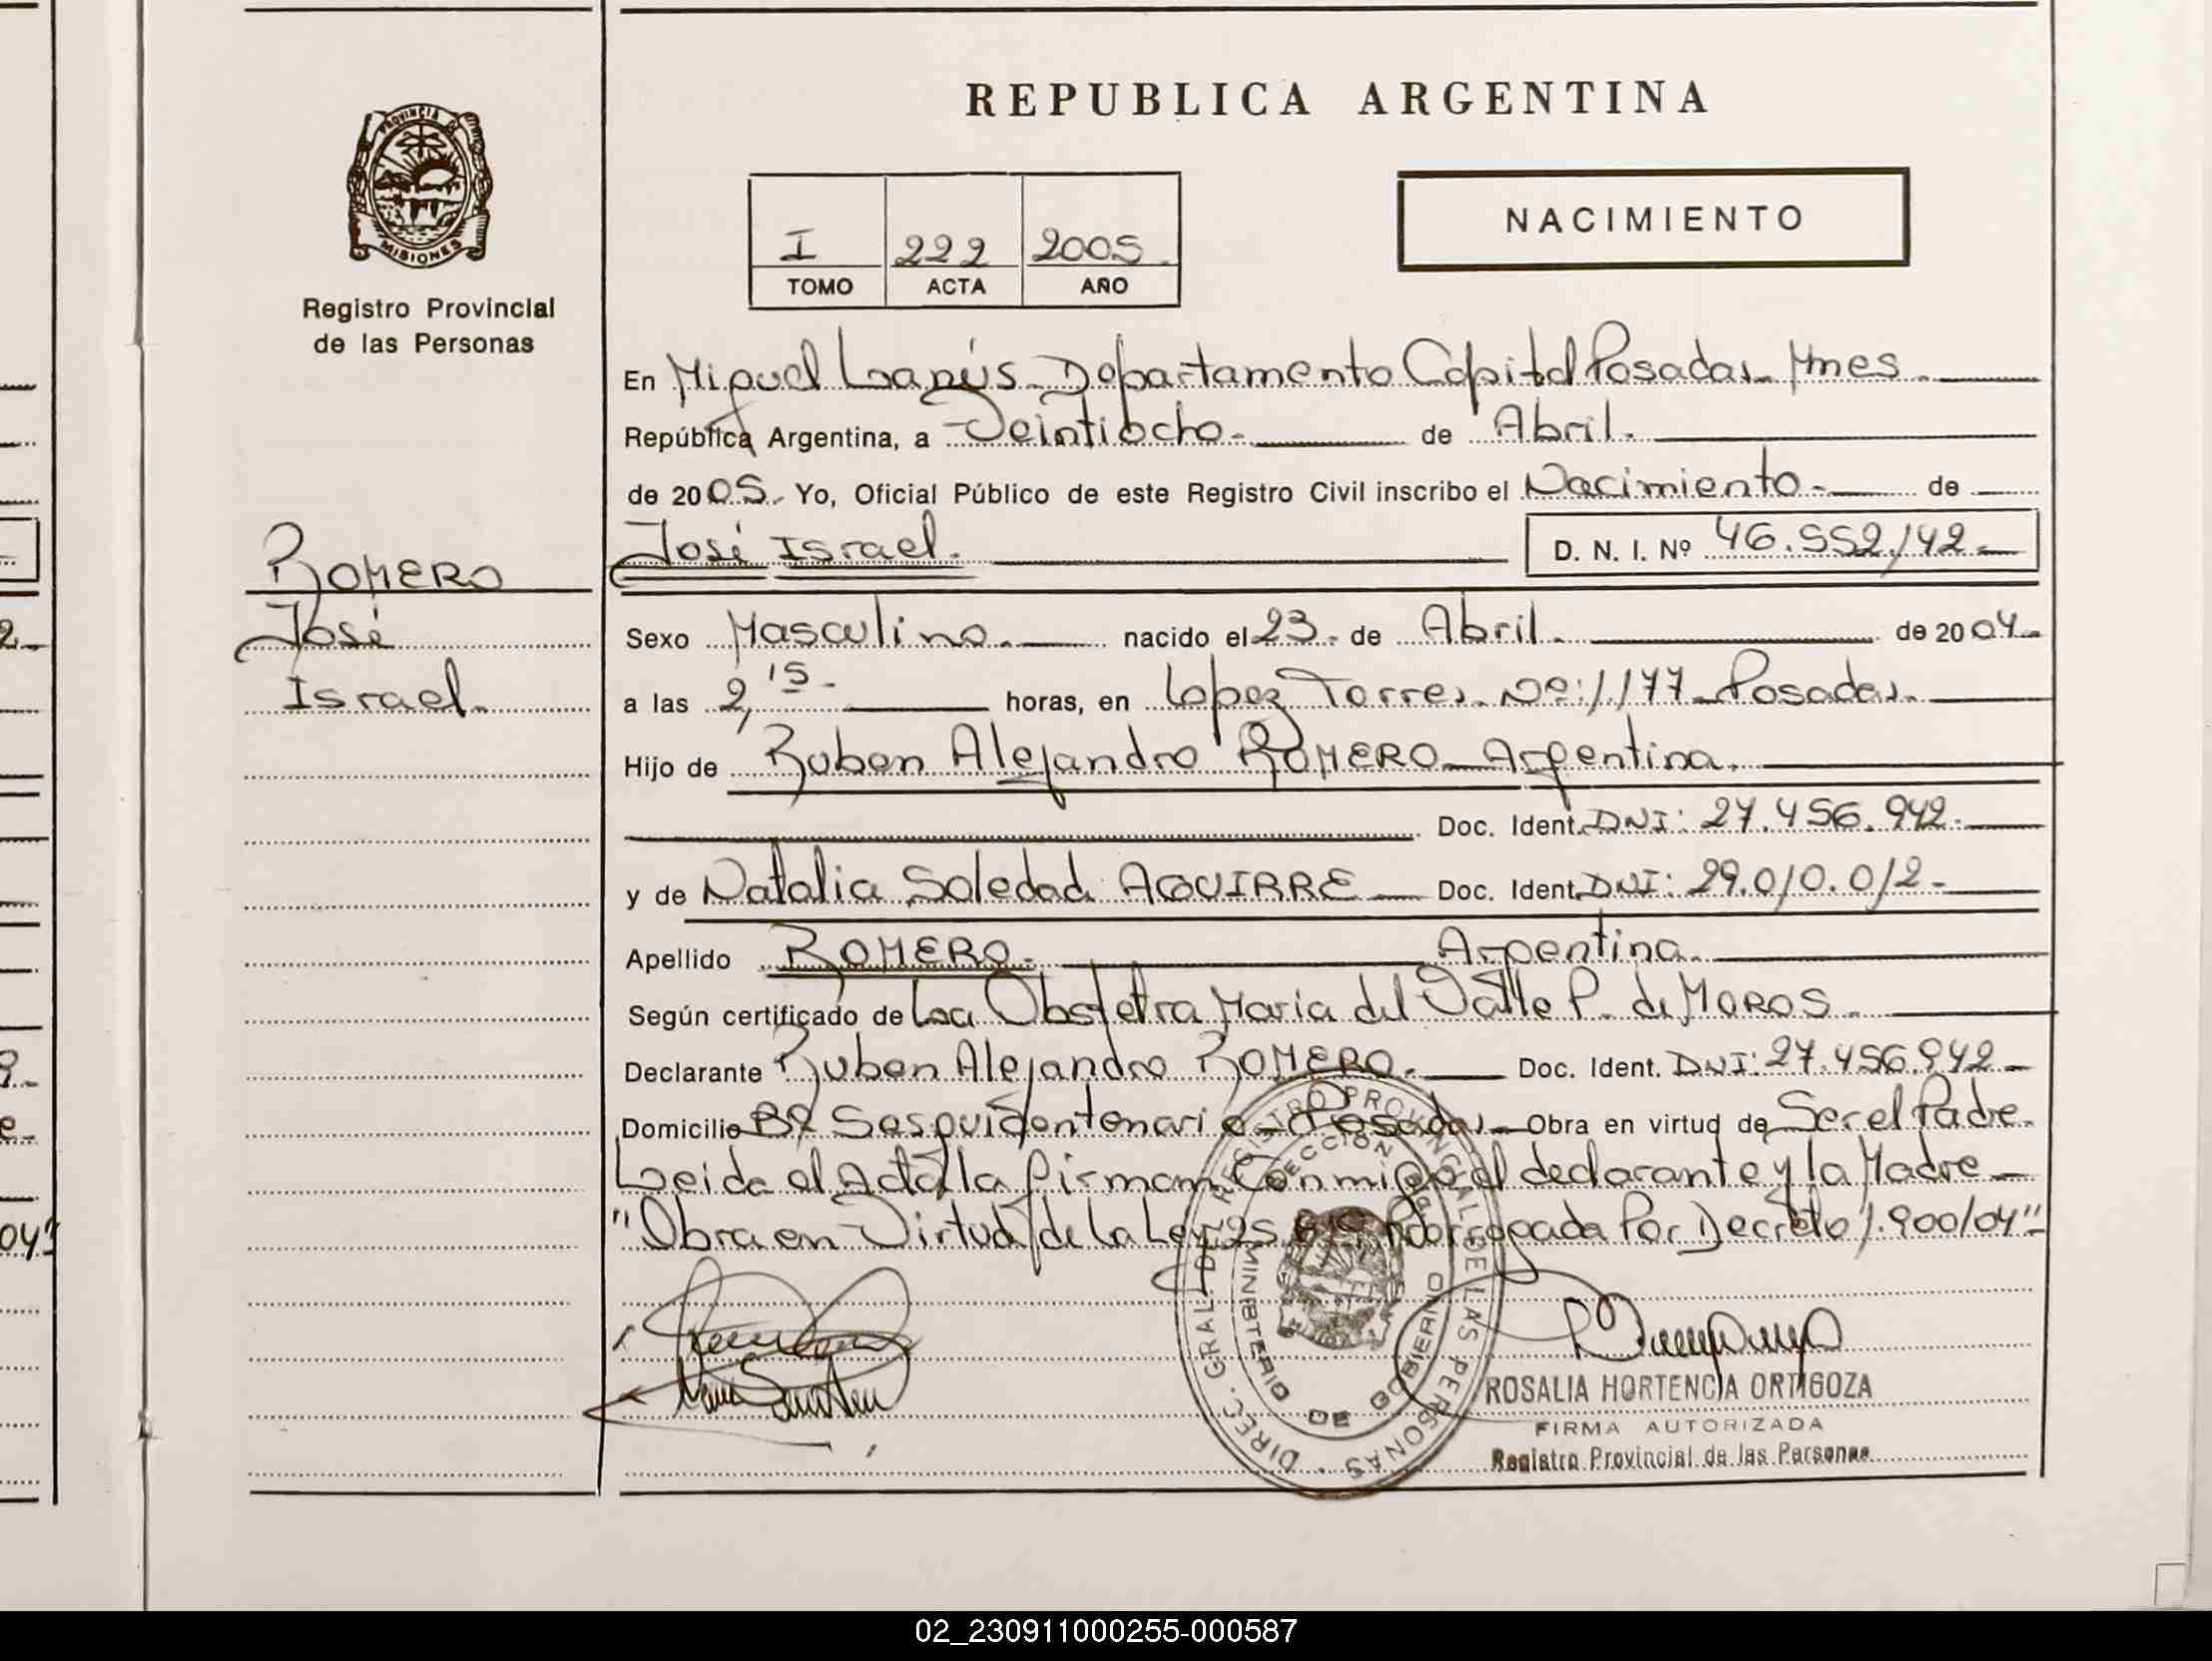 REPUBLICA ARGENTINA
PROVINCIA DE
MISIONES
Registro Provincial
de las Personas
NACIMIENTO
I 222 2005
TOMO ACTA AÑO
En Miguel Lanús Departamento Capital Posadas Mnes
República Argentina, a Veintiocho de Abril.
de 2005. Yo, Oficial Público de este Registro Civil inscribo el Nacimiento de
José Israel. D. N. I. Nº 46.552.142
ROMERO
José
Israel.
Sexo Masculino. nacido el 23 de Abril. de 2004
a las 2,15 horas, en Lopez Torres Nº: 1.177 Posadas
Hijo de Ruben Alejandro ROMERO Argentina.
Doc. Ident. DNI: 27.456.942
y de Natalia Soledad AGUIRRE Doc. Ident. DNI: 29.010.012
Apellido ROMERO. Argentina.
Según certificado de La Obstetra Maria del Valle P. de MOROS.
Declarante Ruben Alejandro ROMERO. Doc. Ident. DNI: 27.456.942
Domicilio Bº Sesquicentenario Posadas Obra en virtud de Ser el Padre.
Leida el Acta la firman Conmigo el declarante y la Madre
"Obra en Virtud de la Ley 25. Prorrogada Por Decreto 1.900/04"
DIREC. GRAL. DE REGISTRO PROVINCIAL DE LAS PERSONAS
MINISTERIO DE GOBIERNO
ROSALIA HORTENCIA ORTIGOZA
FIRMA AUTORIZADA
Registro Provincial de las Personas
02_230911000255-000587